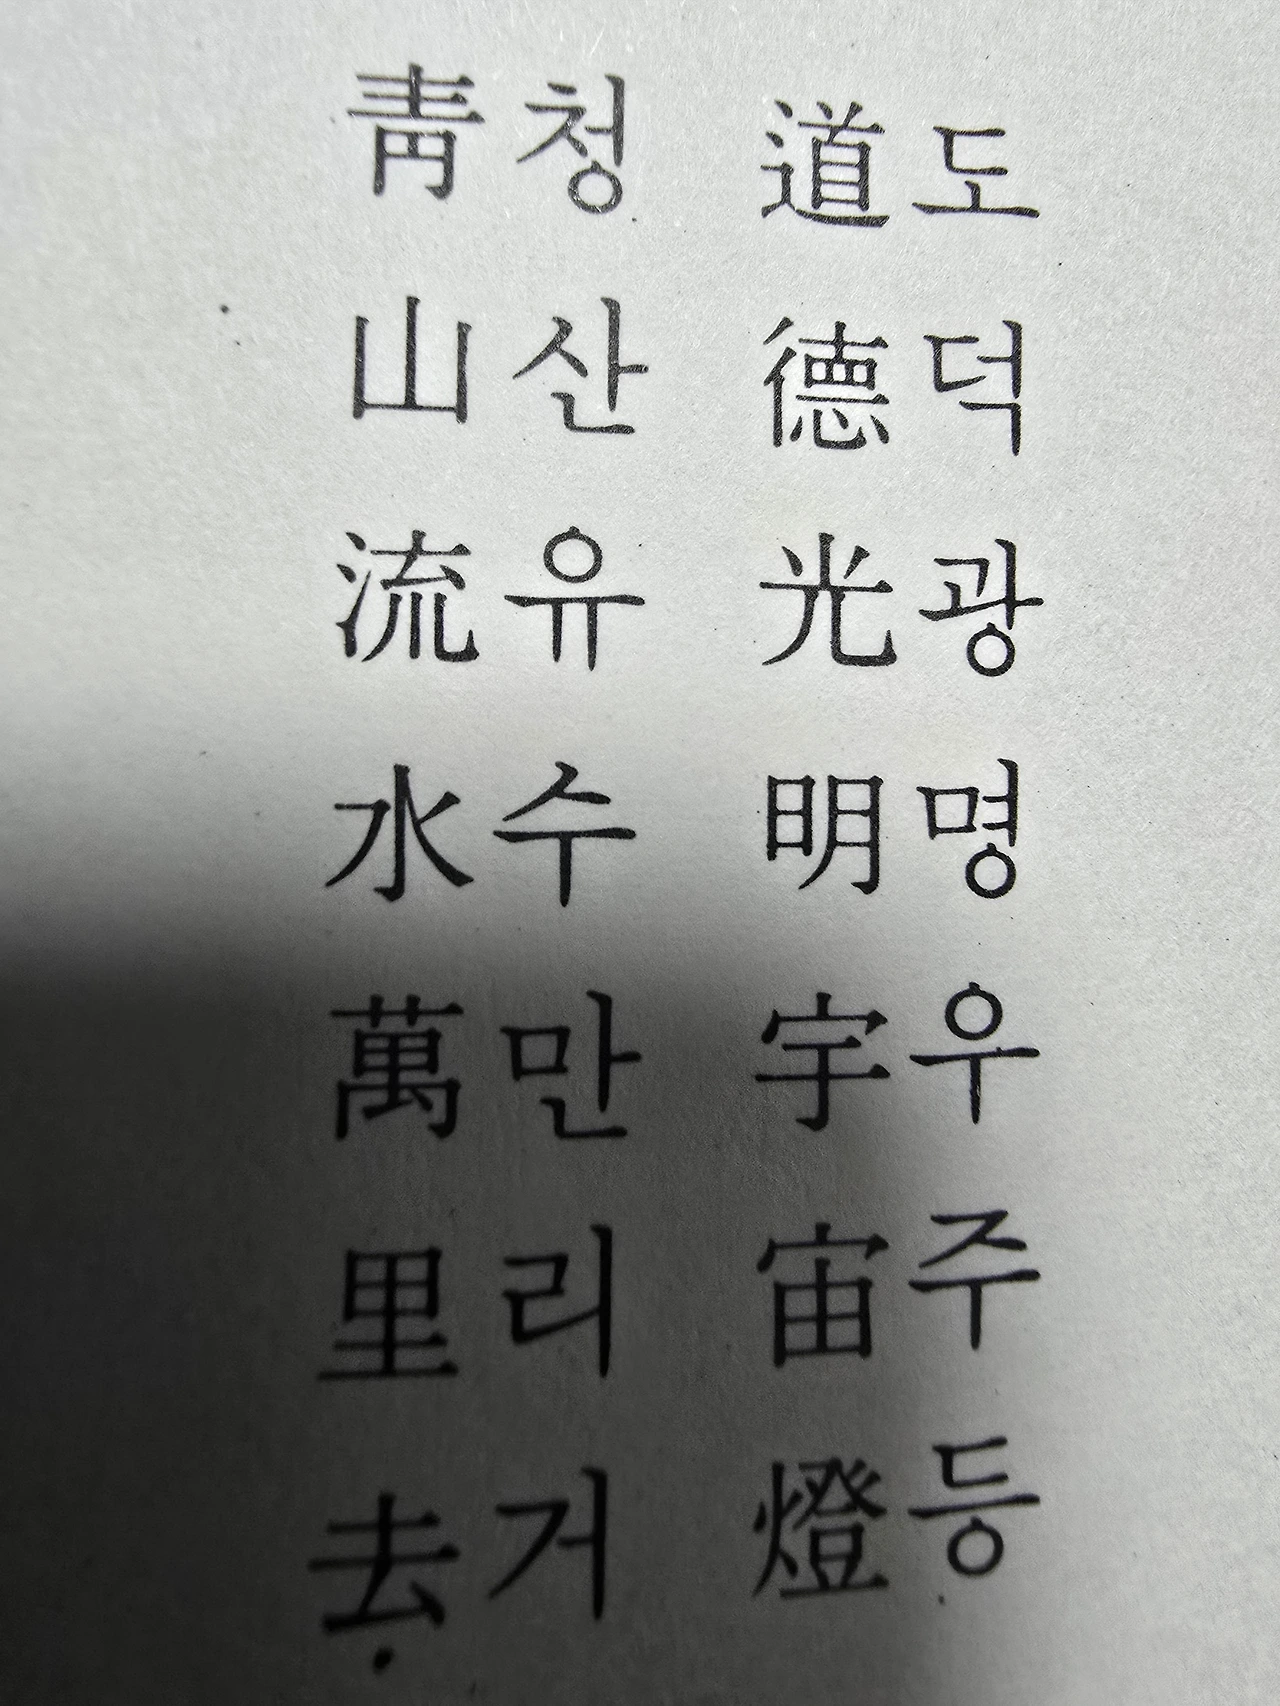 道德光明宇宙燈
도덕광명우주등
靑山流水萬里去
청산유수만리거